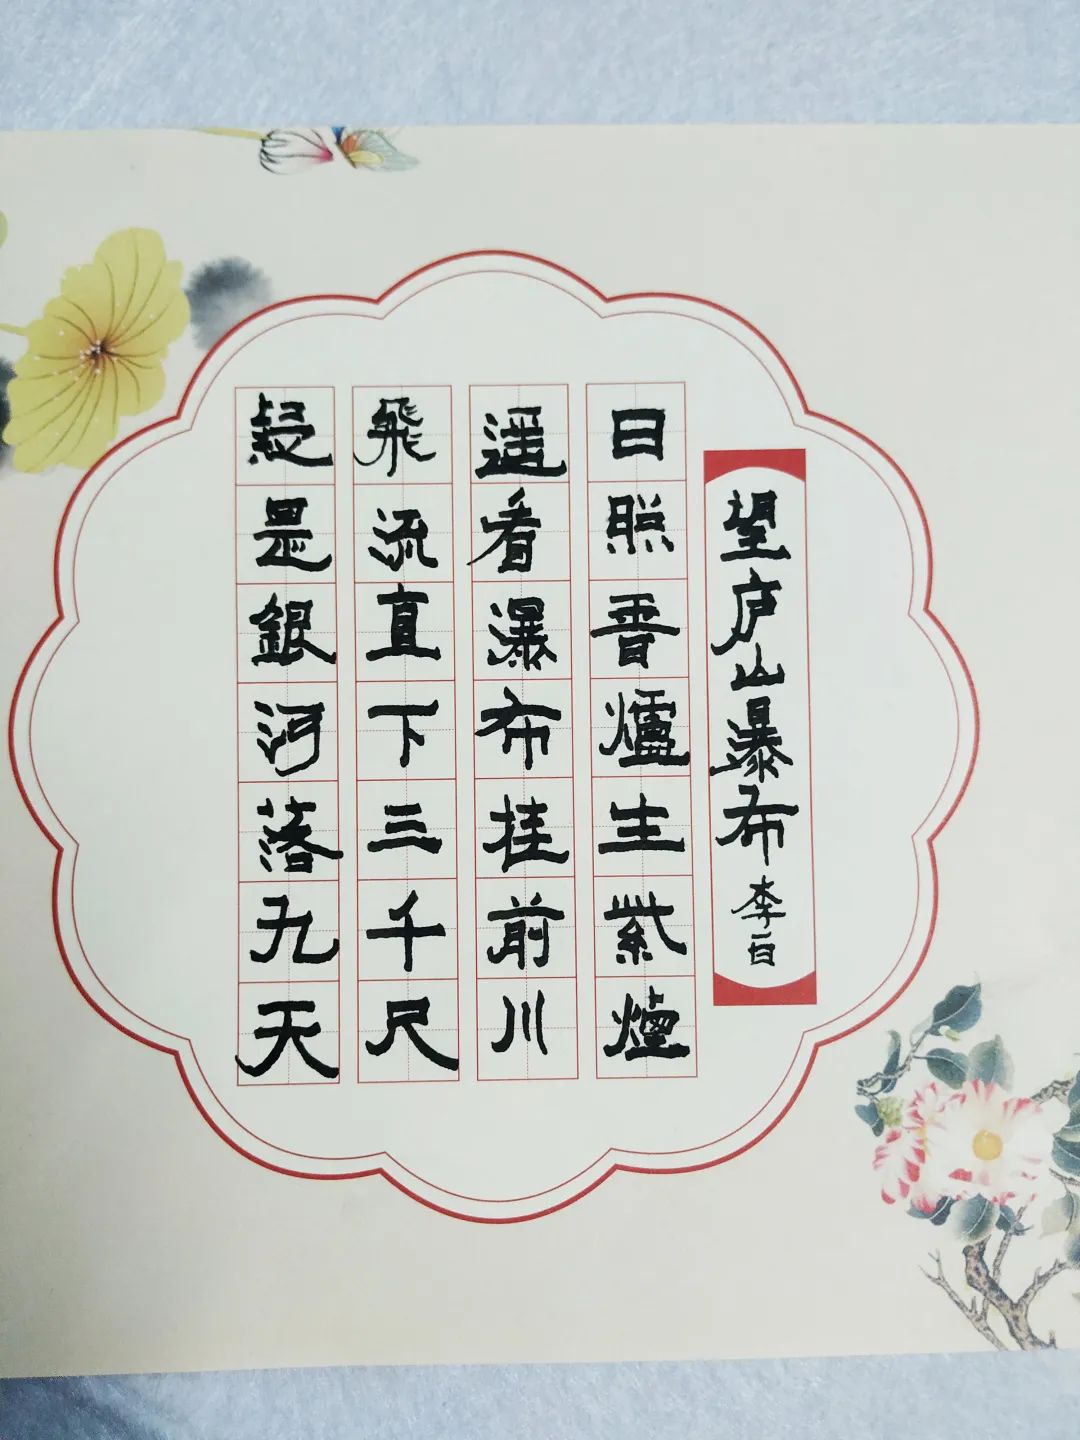 望庐山瀑布 李白
日照晋爐生紫煙
遥看瀑布挂前川
飛流直下三千尺
疑是銀河落九天